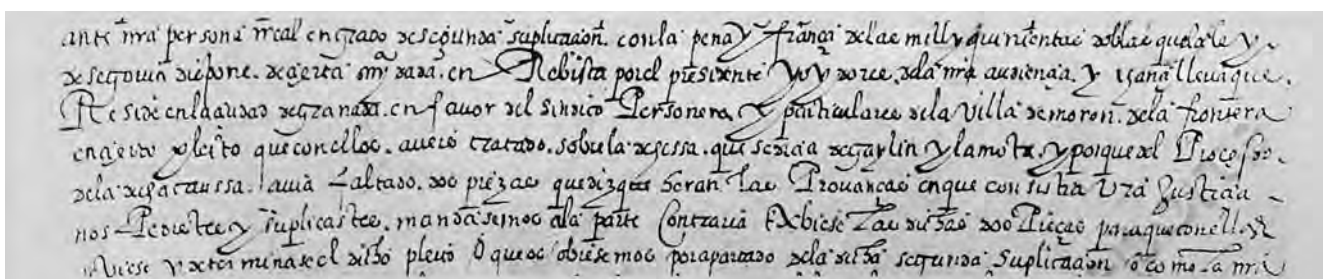 ante nra persona rreal en grado de segunda suplicaçion. con la pena y fiança de las mill y quinientas doblas que la ley
de segovia dispone. de çierta sna dada. en Rebista por el presidente y oydores. de la nra audiençia. y chançilleria que
Reside en la çiudad de granada. en favor del sindico Personero y particulares de la villa de moron. de la frontera
en çierto pleito que con ellos. aveis tratado. sobre la dehessa. que se dizia de gaylin y la mota. y porque del Proceso
de la dicha caussa. avia faltado. dos pieças que dizque heran las Provanças en que consistia vra Justiçia
nos Pedistes y suplicastes. mandasemos a la parte Contraria Exibiese las dichas dos Pieças para que con ellas se
viese y determinase el dicho pleito o que os obiesemos por apartado de la dicha segunda Suplicaçion o como la nra